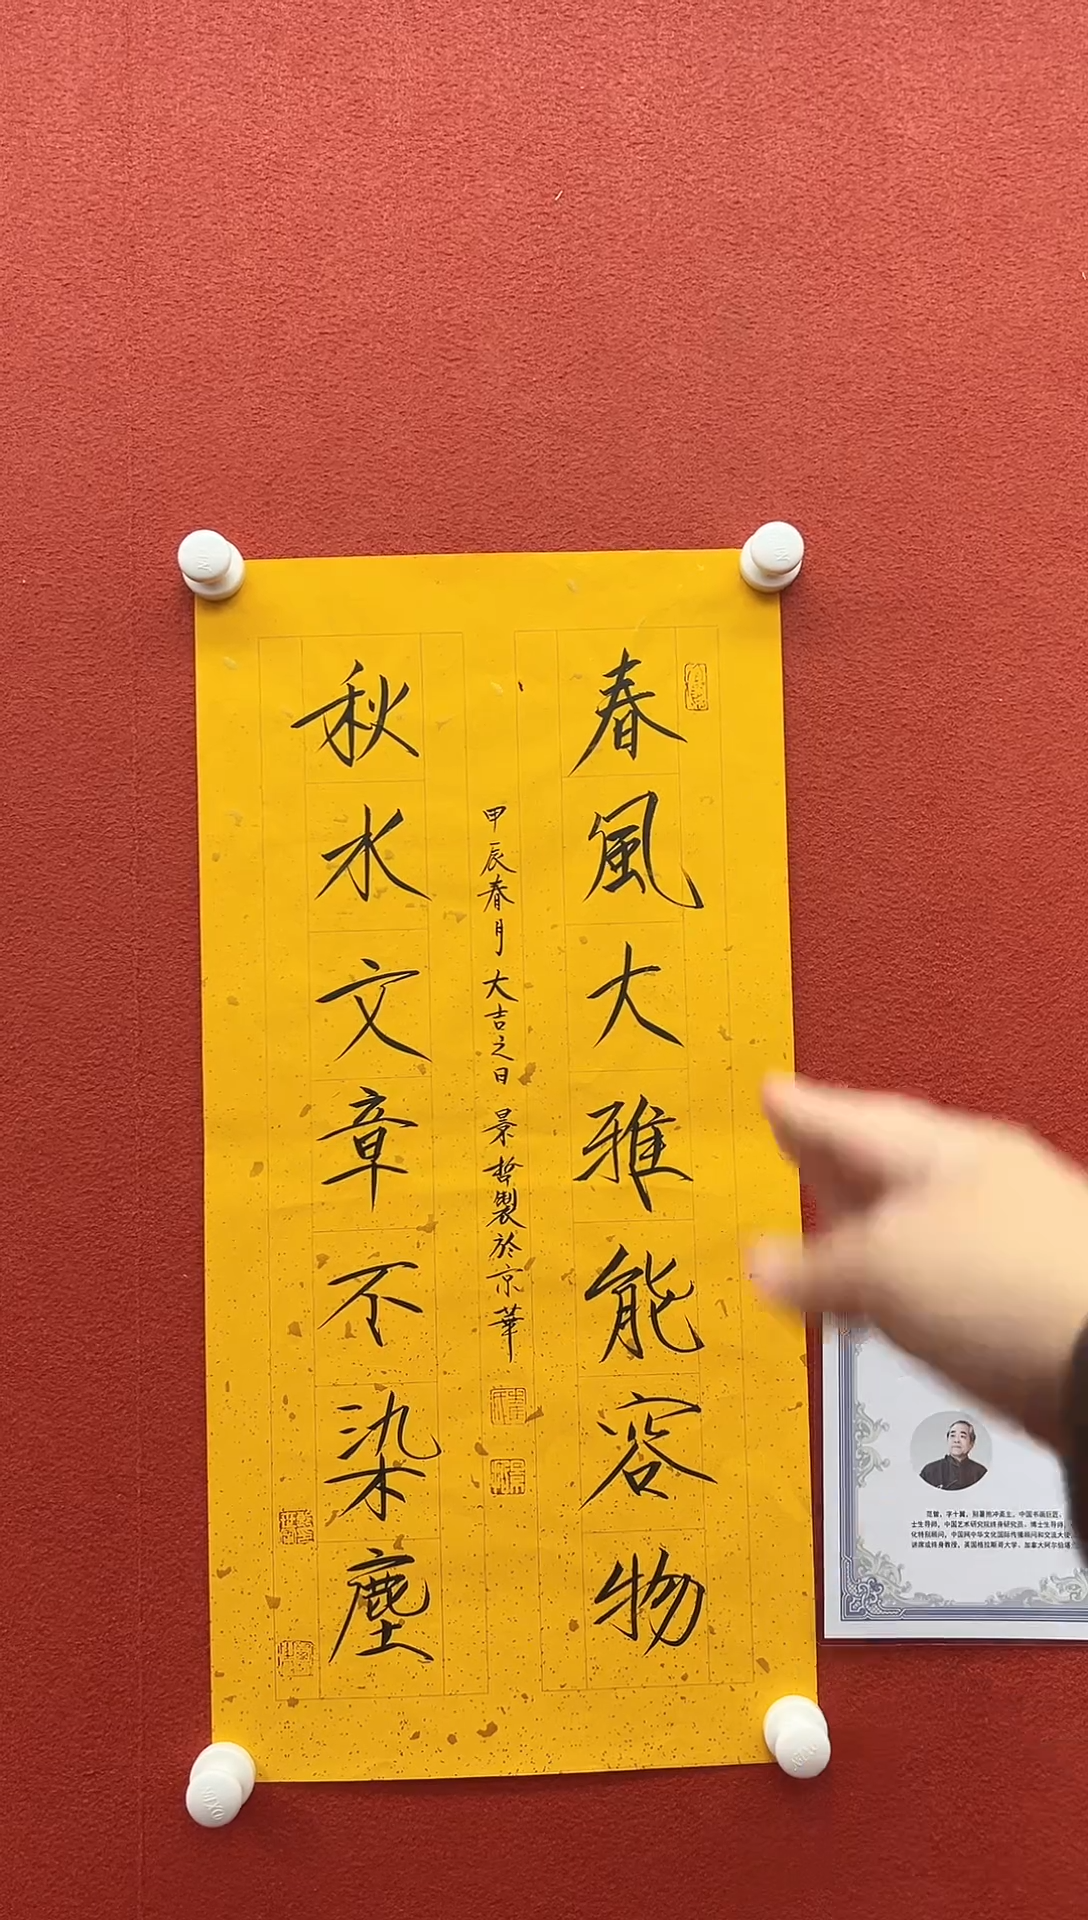 春風大雅能容物
甲辰春月大吉之日 景哲製於京華
秋水文章不染塵
范曾，字十翼，别署抱冲斋主，中国书画巨匠，
士生导师，中国艺术研究院终身研究员、博士生导师，
化特别顾问，中国网中华文化国际传播顾问和交流大使
讲席或终身教授，英国格拉斯哥大学、加拿大阿尔伯塔